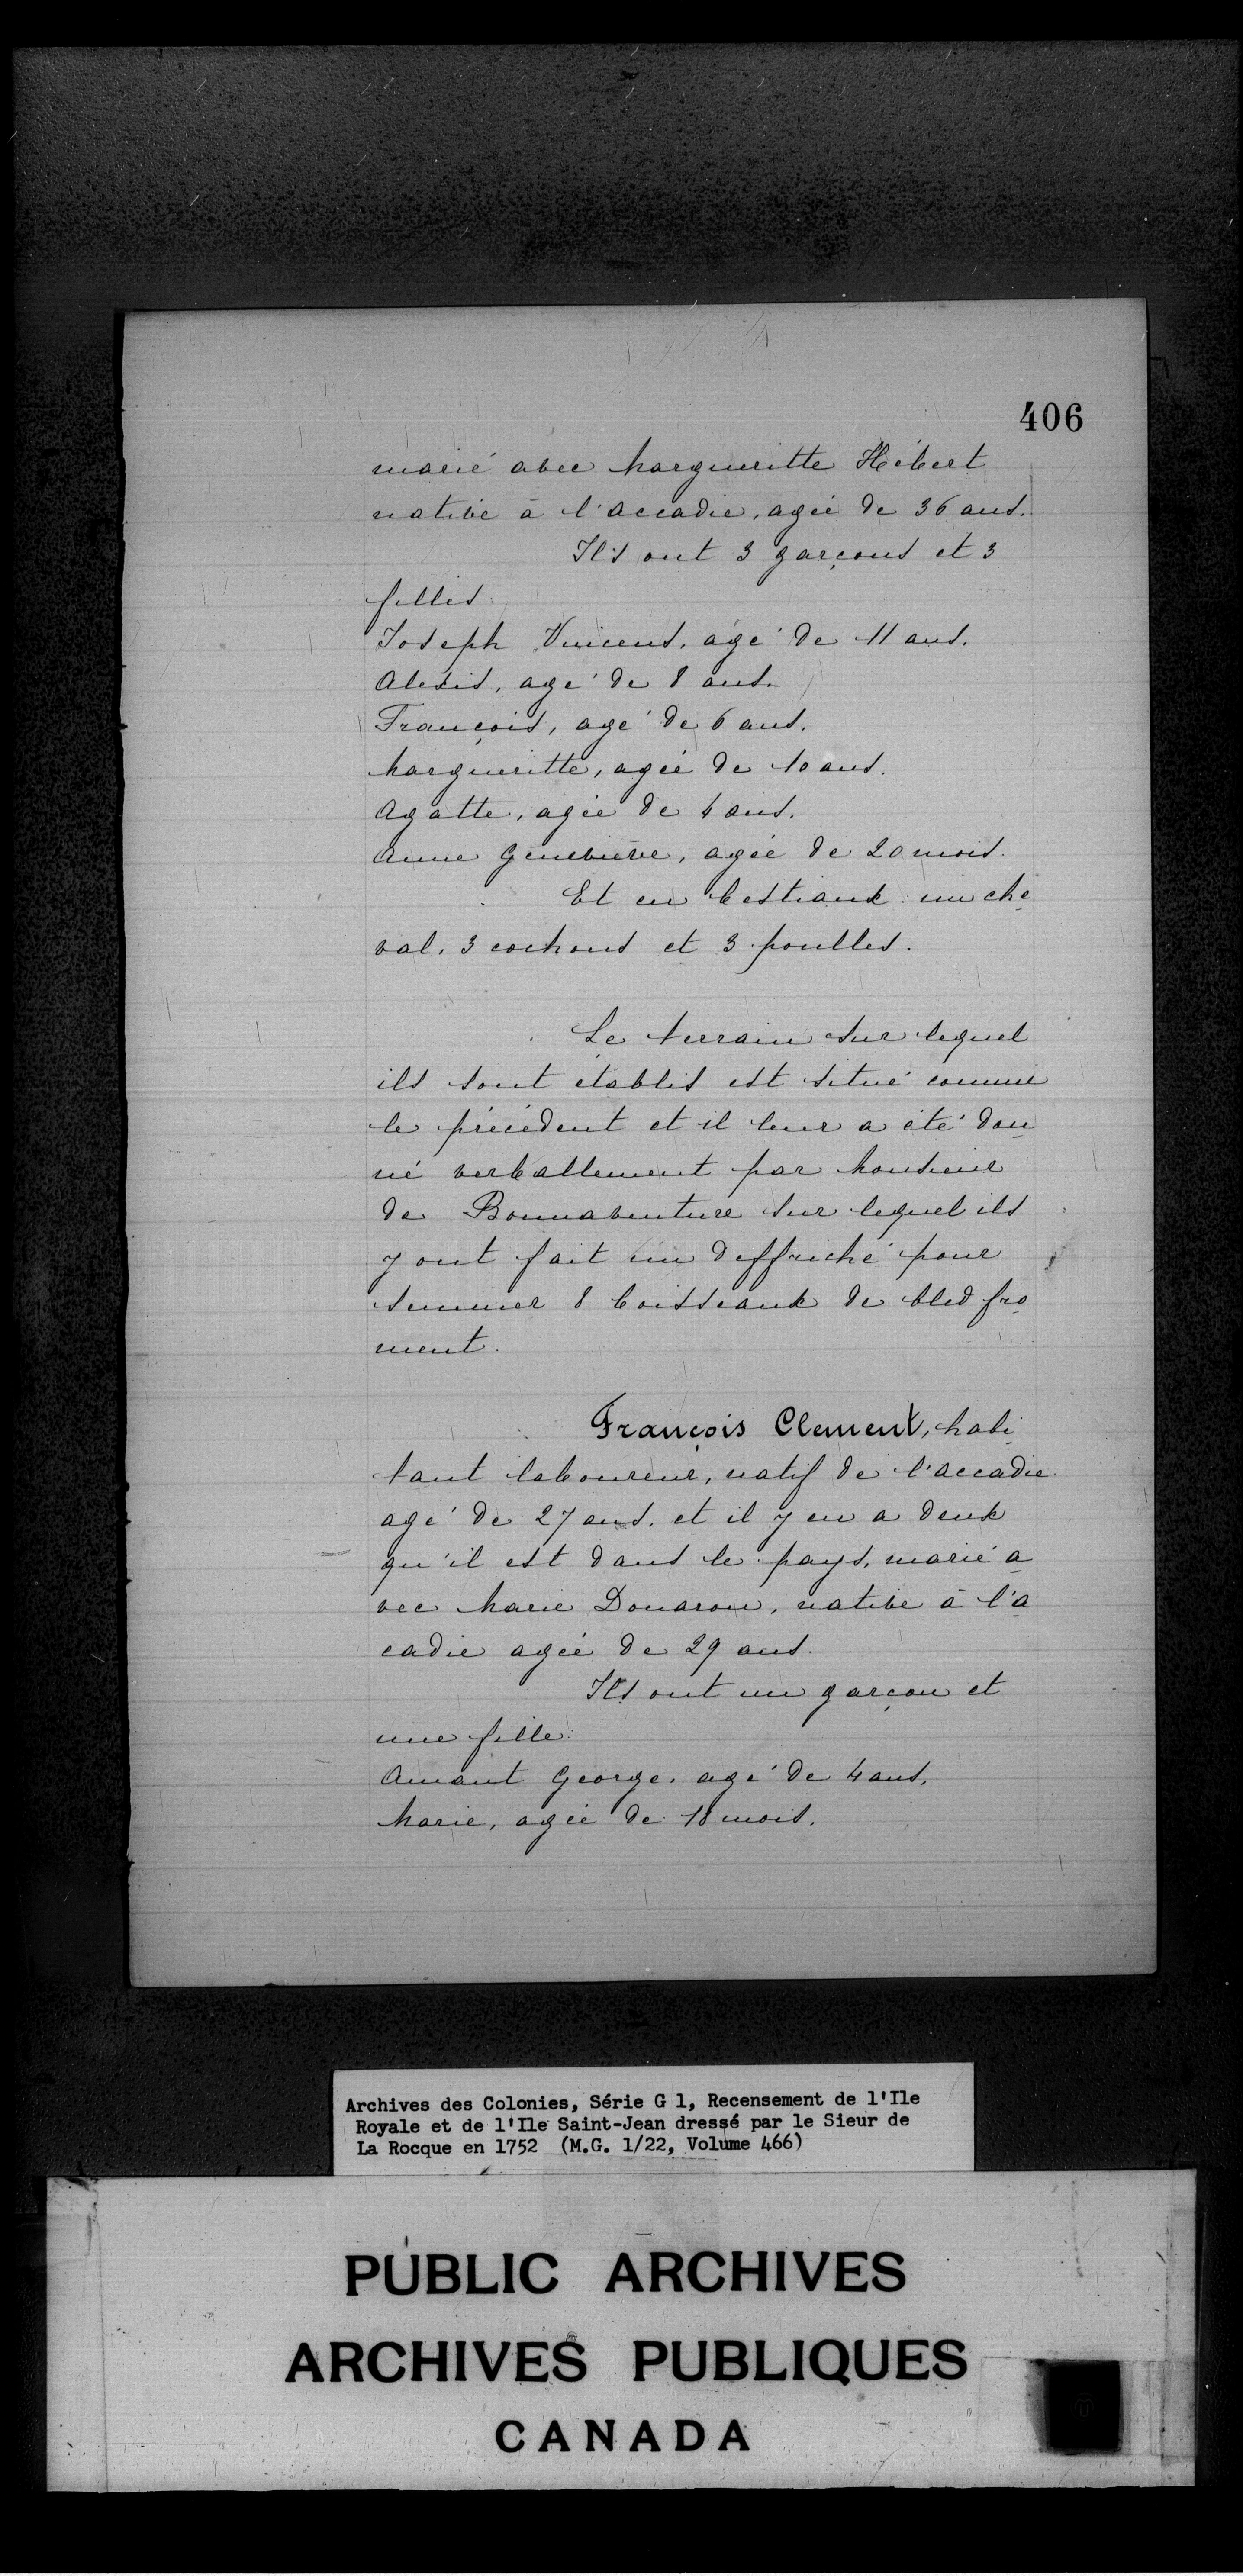 406
marié avec Margueritte Hébert
native à l'Accadie, agée de 36 ans.
Ils ont 3 garçons et 3
filles:
Joseph Vincens, agé de 11 ans.
Alexis, agé de 8 ans.
François, agé de 6 ans.
Margueritte, agée de 10 ans.
Agatte, agée de 4 ans.
Anne Geneviève, agée de 20 mois.
Et en bestiaux: un che
val, 3 cochons et 3 poulles.
Le terrain sur lequel
ils sont établis est situé comme
le précédent et il leur a été don
né verballement par Monsieur
de Bonnaventure sur lequel ils
y ont fait un deffriché pour
semmer 8 boisseaux de bled fro
ment.
François Clement, habi
tant laboureur, natif de l'Accadie
agé de 27 ans, et il y en a deux
qu'il est dans le pays, marié a
vec Marie Douaron, native à l'A
cadie agée de 29 ans.
Ils ont un garçon et
une fille:
Amant George, agé de 4 ans,
Marie, agée de 18 mois.
Archives des Colonies, Série G 1, Recensement de l'Ile
Royale et de l'Ile Saint-Jean dressé par le Sieur de
La Rocque en 1752 (M.G. 1/22, Volume 466)
PUBLIC ARCHIVES
ARCHIVES PUBLIQUES
CANADA